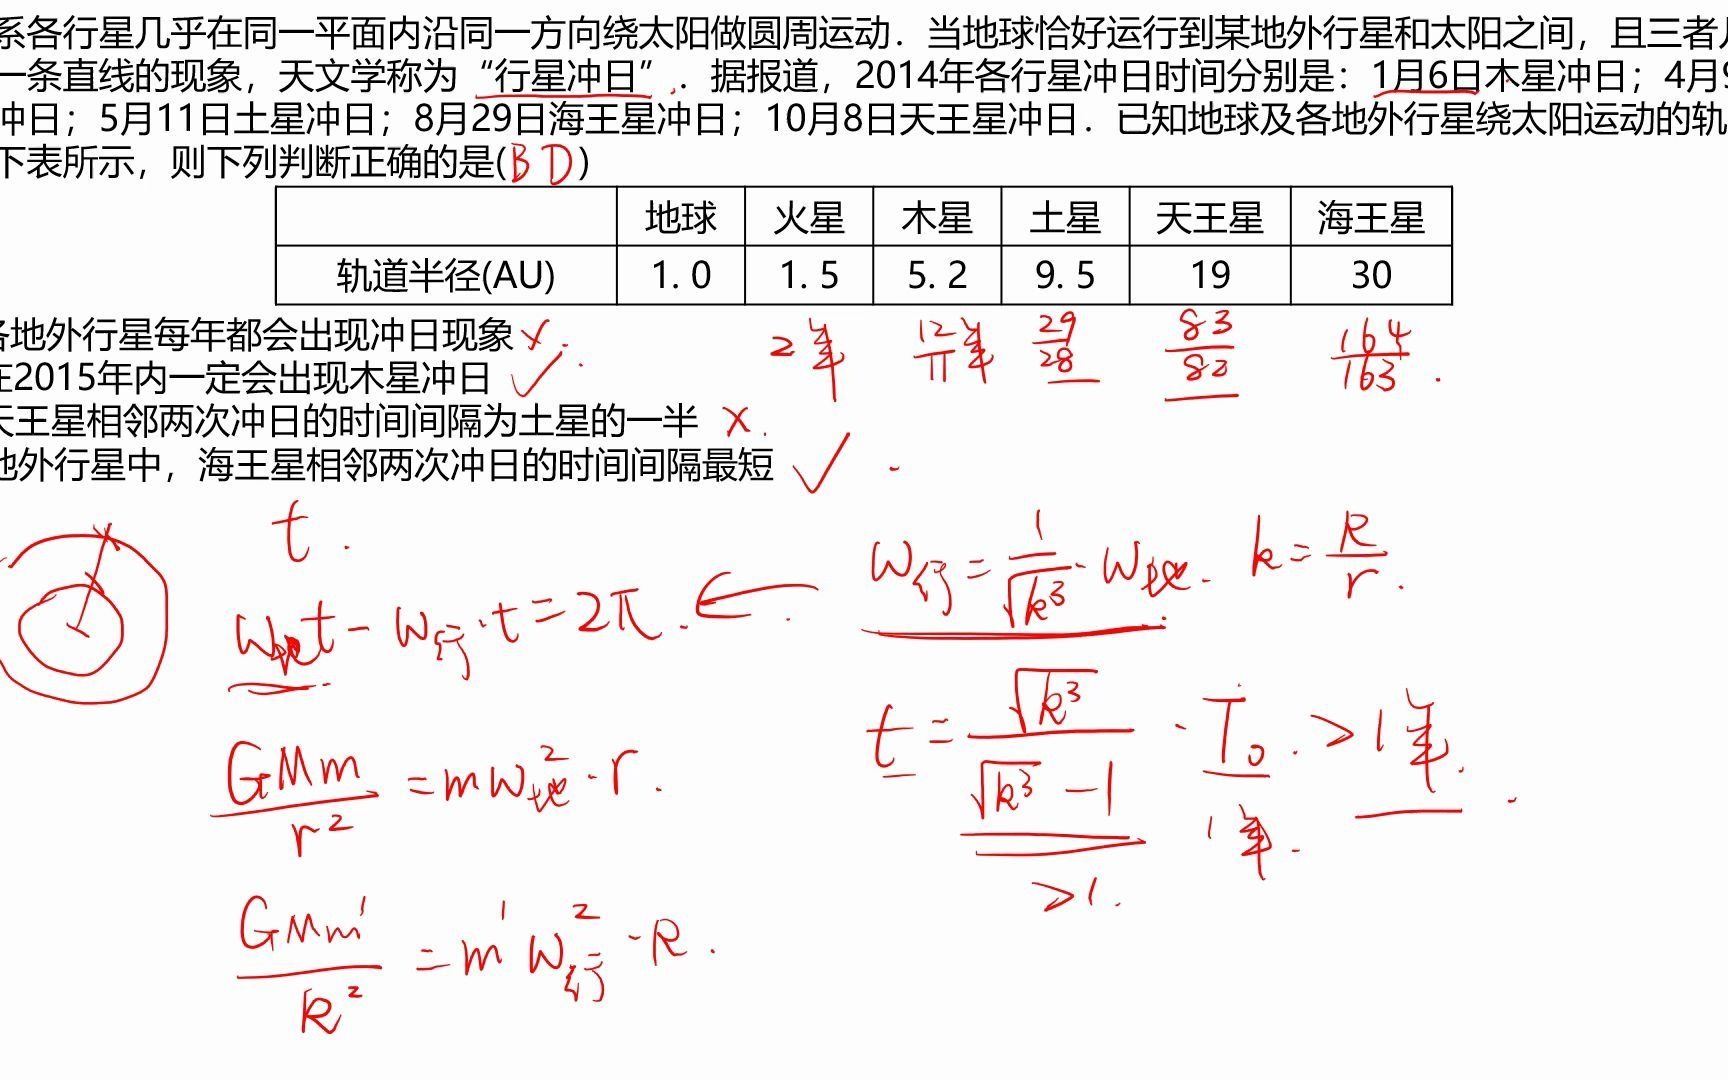 系各行星几乎在同一平面内沿同一方向绕太阳做圆周运动．当地球恰好运行到某地外行星和太阳之间，且三者
一条直线的现象，天文学称为“行星冲日”．据报道，2014年各行星冲日时间分别是：1月6日木星冲日；4月9
冲日；5月11日土星冲日；8月29日海王星冲日；10月8日天王星冲日．已知地球及各地外行星绕太阳运动的轨
下表所示，则下列判断正确的是(BD)
地球 火星 木星 土星 天王星 海王星
轨道半径(AU) 1.0 1.5 5.2 9.5 19 30
各地外行星每年都会出现冲日现象 ×
在2015年内一定会出现木星冲日 ✓
天王星相邻两次冲日的时间间隔为土星的一半 ×
地外行星中，海王星相邻两次冲日的时间间隔最短 ✓
2年 12/11年 29/28 83/82 164/163
t
ω地t - ω行·t = 2π
GMm/r² = mω地²·r
GMm'/R² = m'ω行²·R
ω行 = 1/√k³ · ω地 k = R/r
t = √k³/(√k³ - 1) · T₀ > 1年
>1 1年